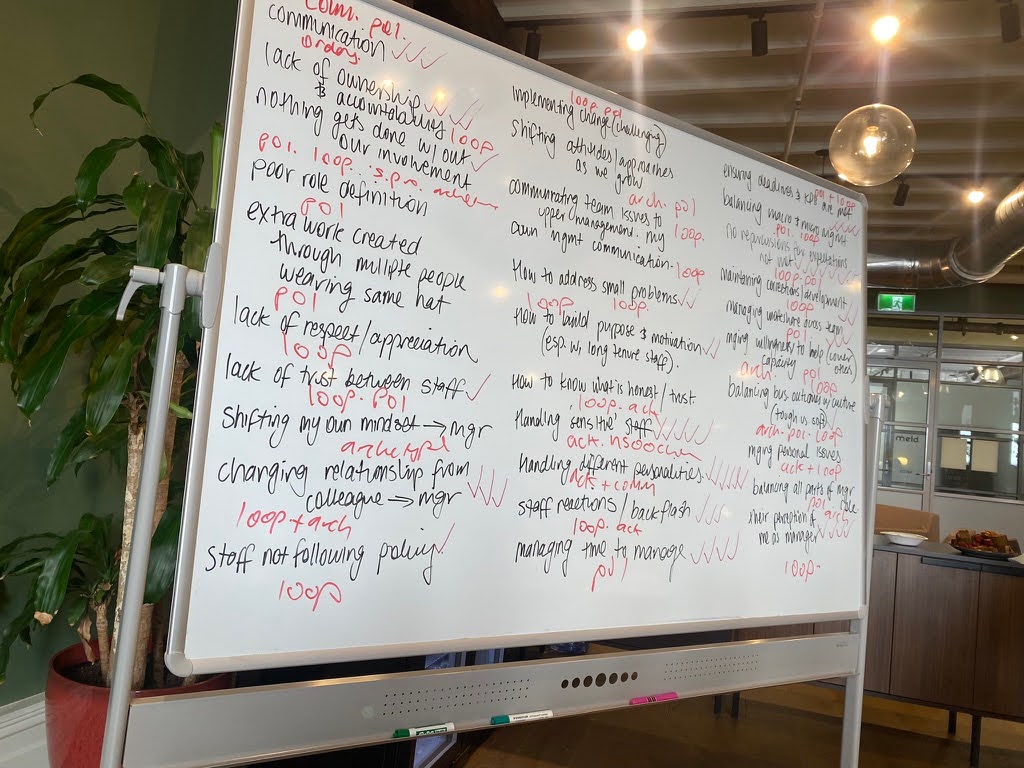 comm. poi.
communication
lack of ownership
& accountability loop
nothing gets done w/out
our involvement
poi. loop. s.p.o.
poor role definition
poi
extra work created
through multiple people
wearing same hat
poi
lack of respect/appreciation
loop
lack of trust between staff
loop. poi
shifting my own mindset → mgr
archetypl
changing relationship from
colleague → mgr
loop + arch
staff not following policy
loop
loop poi
Implementing change (challenging)
shifting attitudes/approaches
as we grow
arch. poi
communicating team issues to
upper management: my loop.
own mgmt communication.
loop
How to address small problems
loop loop.
How to build purpose & motivation
(esp. w, long tenure staff).
How to know what is honest/trust
loop. ack
Handling 'sensitive' staff
ack.
Handling different personalities
ack + comm
staff reactions/backflash
loop. act
managing time to manage
poi
ensuring deadlines & KPIs are met
poi + loop
balancing macro & micro mgmt
poi. loop
no repurcussions for expectations
not met
loop. poi
maintaining connections/development
loop
managing workshare across team
poi
mging willingness to help (cover
capacity others)
arch. poi
loop
balancing bus outcomes w, culture
(tough vs soft)
arch. poi. loop
mging personal issues
ack + loop
balancing all parts of mgr
role
poi arch
their perception of
me as manager
loop.
meld